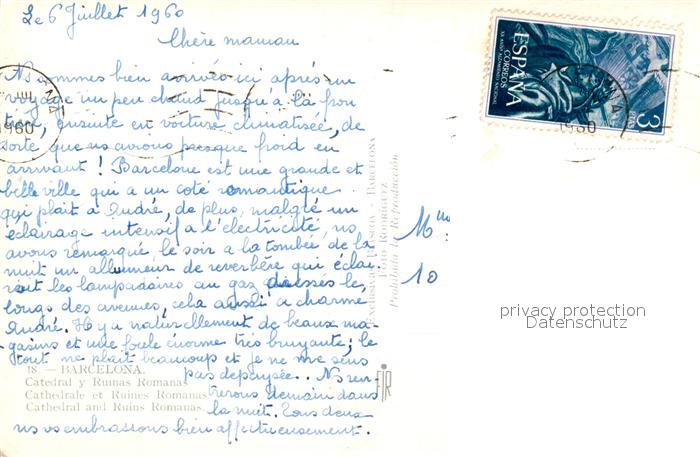 Le 6 Juillet 1960
Chère maman
Ns sommes bien arrivés ici après un
voyage un peu chaud jusqu'à la fron
tière, ensuite en voiture climatisée, de
sorte que ns avons presque froid en
arrivant ! Barcelone est une grande et
belle ville qui a un coté romantique
qui plait à André, de plus, malgré un
éclairage intensif a l'électricité, ns
avons remarqué, le soir a la tombée de la
nuit un allumeur de reverbère qui éclai
rait les lampadaires au gaz dressés le
longs des avenues, cela aussi a charmé
André. Il y a naturellement de beaux ma-
gasins et une foule énorme très bruyante ; le
tout me plait beaucoup et je ne me sens
pas depaysée. Ns ren-
trerons demain dans
la nuit. Tous deux
ns vs embrassons bien affectueusement.
18. — BARCELONA.
Catedral y Ruinas Romanas
Cathedrale et Ruines Romanes
Cathedral and Ruins Romanes
BARCELONA
FOTO RODRIGUEZ
Prohibida la Reproducción
FJR
ESPAÑA
CORREOS
3
PTAS
1960
1960
Mme
10
privacy protection
Datenschutz